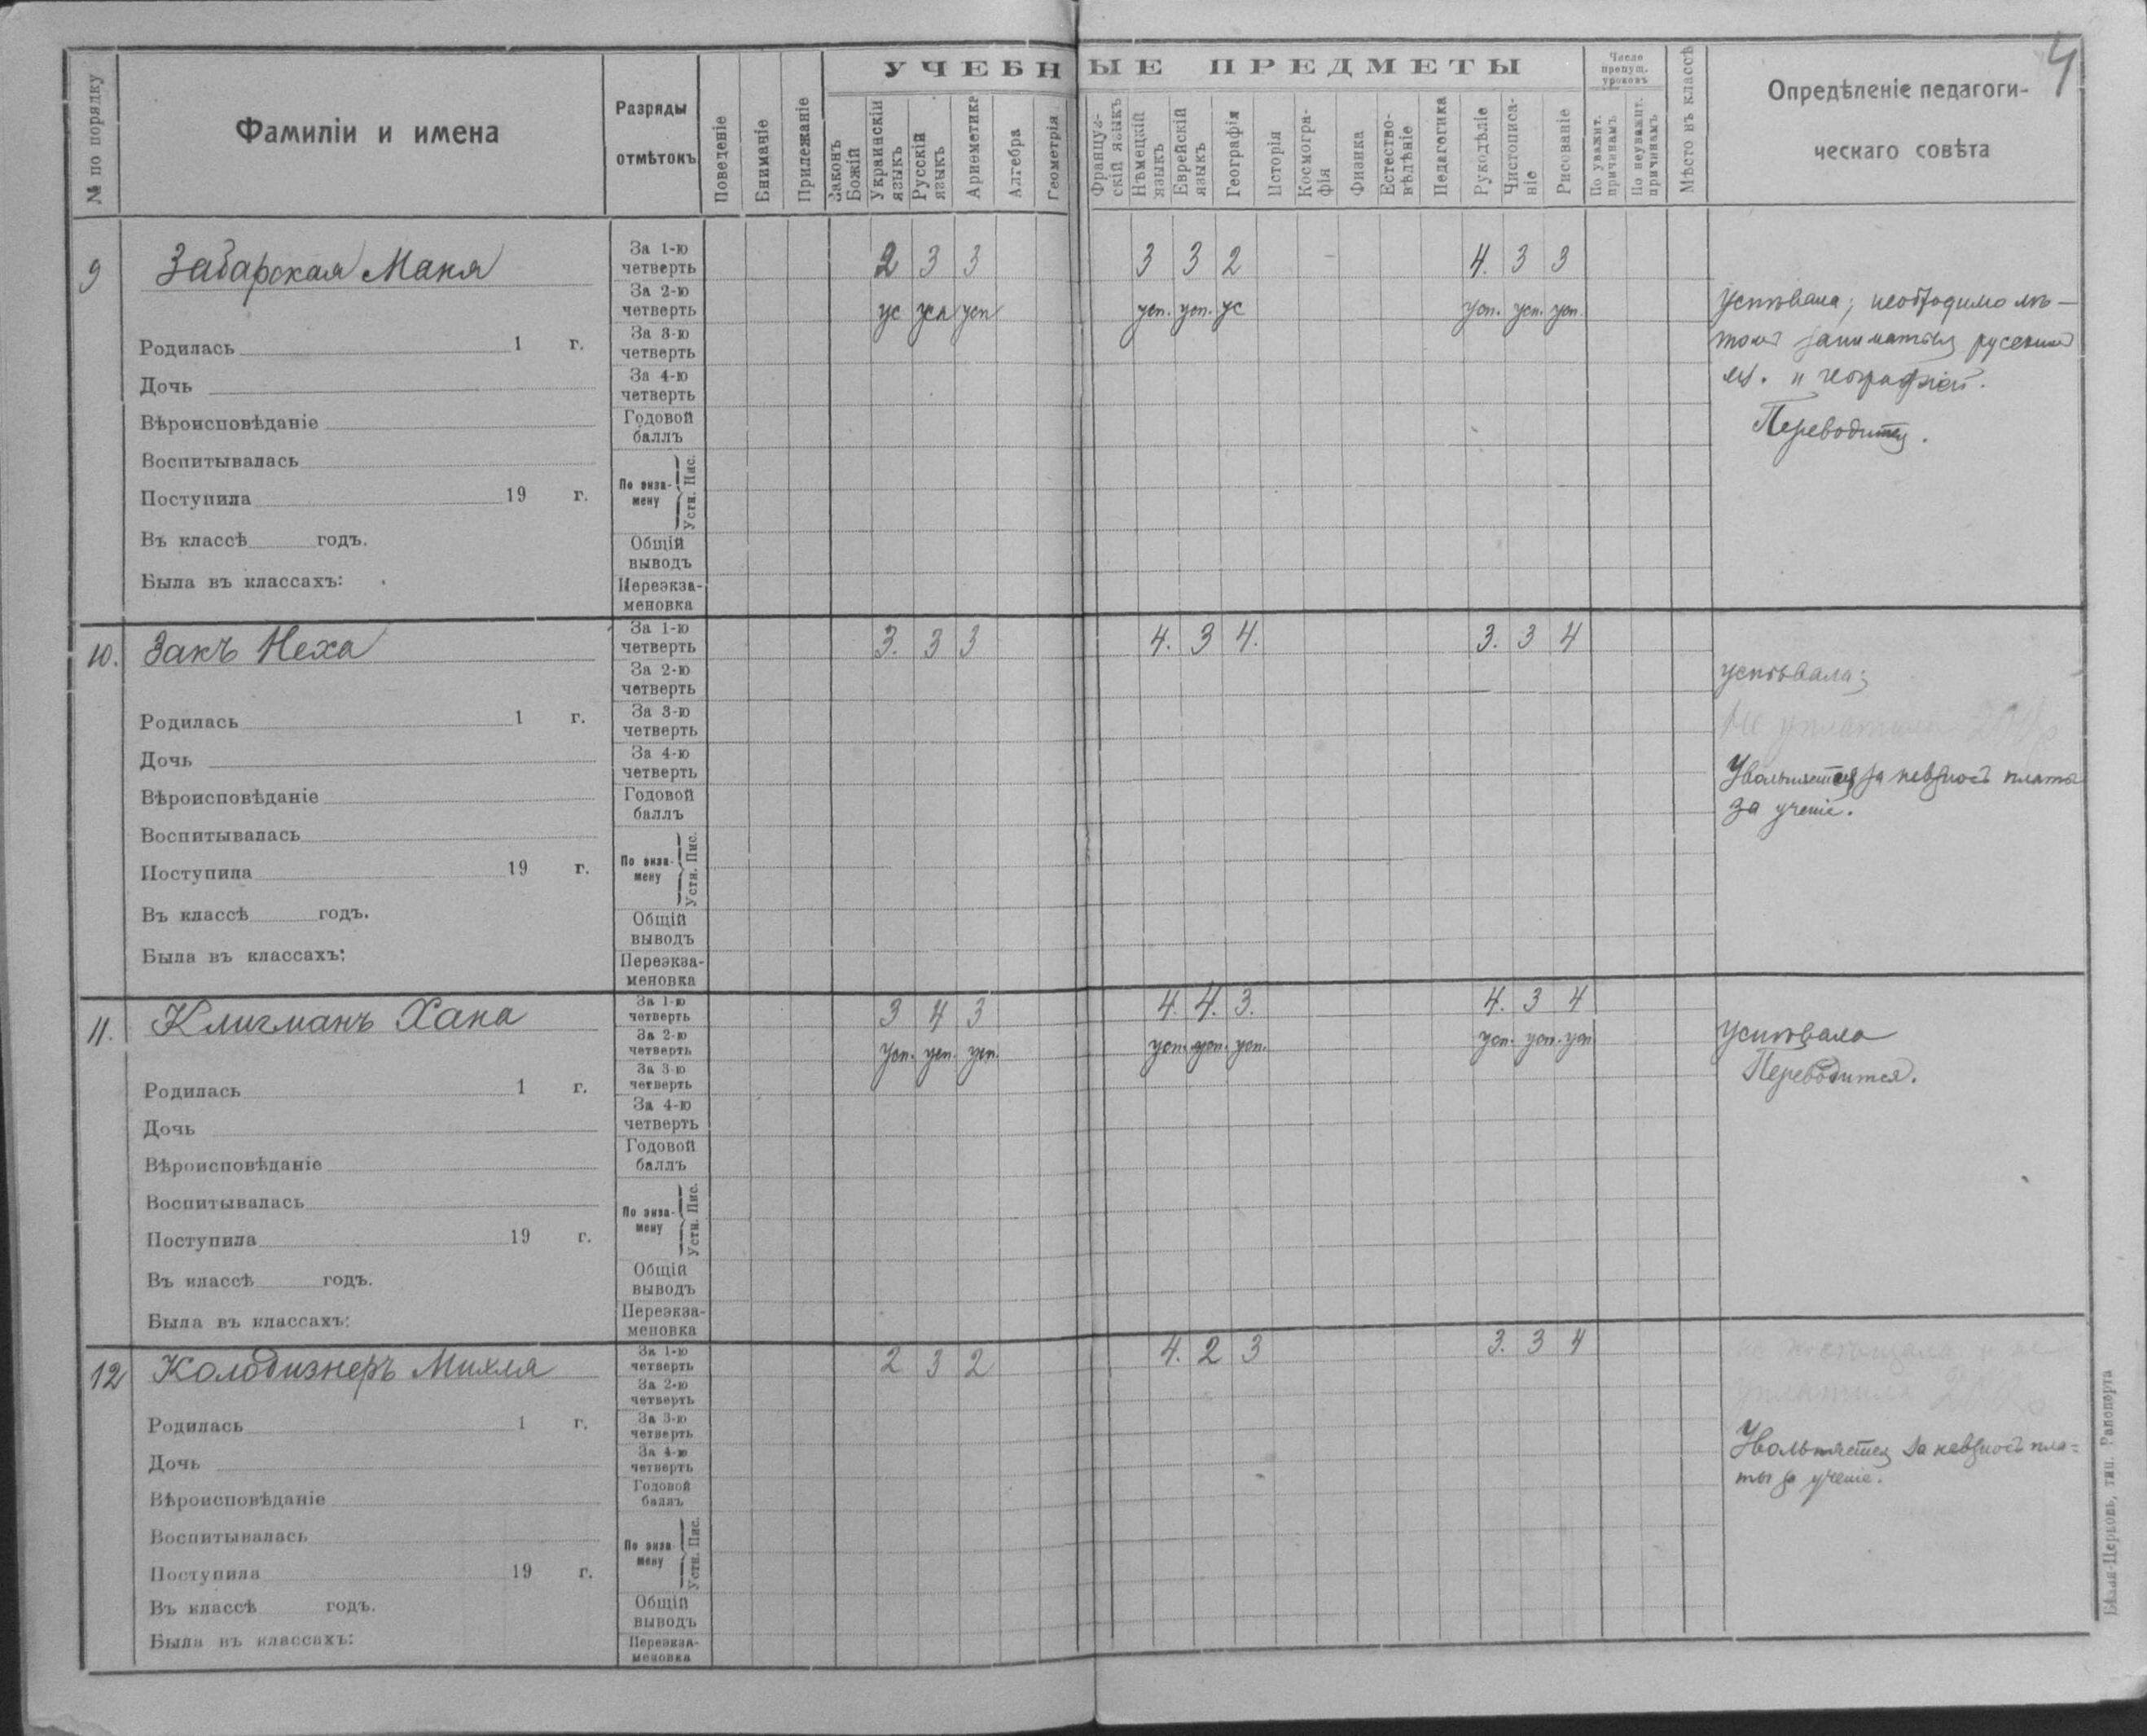 4
УЧЕБНЫЕ ПРЕДМЕТЫ
№ по порядку
Фамиліи и имена
Разряды
отмѣтокъ
Поведеніе
Вниманіе
Прилежаніе
Законъ
Божій
Украинскій
языкъ
Русскій
языкъ
Ариѳметика
Алгебра
Геометрія
Француз-
скій языкъ
Нѣмецкій
языкъ
Еврейскій
языкъ
Географія
Исторія
Космогра-
фія
Физика
Естество-
вѣдѣніе
Педагогика
Рукодѣліе
Чистописа-
ніе
Рисованіе
Число
пропущ.
уроковъ
По уважит.
причинамъ
По неуважит.
причинамъ
Мѣсто въ классѣ
Опредѣленіе педагоги-
ческаго совѣта
9 Забарская Маня
За 1-ю
четверть
2 3 3 3 3 2 4. 3 3
За 2-ю
четверть
ус усп усп усп. усп. ус усп. усп. усп.
Родилась 1 г.
За 3-ю
четверть
Дочь
За 4-ю
четверть
Вѣроисповѣданіе
Годовой
баллъ
Воспитывалась
По экза-
мену
Устн. Пис.
Поступила 19 г.
Въ классѣ годъ.
Общій
выводъ
Была въ классахъ:
Переэкза-
меновка
Успѣвала; необходимо лѣ-
томъ заниматься русскимъ
яз. и географіей.
Переводится.
10. Закъ Неха
За 1-ю
четверть
3. 3 3 4. 3 4. 3. 3 4
За 2-ю
четверть
Родилась 1 г.
За 3-ю
четверть
Дочь
За 4-ю
четверть
Вѣроисповѣданіе
Годовой
баллъ
Воспитывалась
По экза-
мену
Устн. Пис.
Поступила 19 г.
Въ классѣ годъ.
Общій
выводъ
Была въ классахъ:
Переэкза-
меновка
успѣвала;
Не уплатила
Увольняется за невзносъ платы
за ученіе.
11. Клигманъ Хана
За 1-ю
четверть
3 4 3 4. 4. 3. 4. 3 4
За 2-ю
четверть
Усп. усп. усп. усп. усп. усп. усп. усп. усп
Родилась 1 г.
За 3-ю
четверть
Дочь
За 4-ю
четверть
Вѣроисповѣданіе
Годовой
баллъ
Воспитывалась
По экза-
мену
Устн. Пис.
Поступила 19 г.
Въ классѣ годъ.
Общій
выводъ
Была въ классахъ:
Переэкза-
меновка
Успѣвала
Переводится.
12 Колодизнеръ Михля
За 1-ю
четверть
2 3 2 4. 2 3 3. 3 4
За 2-ю
четверть
Родилась 1 г.
За 3-ю
четверть
Дочь
За 4-ю
четверть
Вѣроисповѣданіе
Годовой
баллъ
Воспитывалась
По экза-
мену
Устн. Пис.
Поступила 19 г.
Въ классѣ годъ.
Общій
выводъ
Была въ классахъ:
Переэкза-
меновка
не посѣщала и не
уплатила
Увольняется за невзносъ пла-
ты за ученіе.
Бѣлая-Церковь, тип. Рапопорта